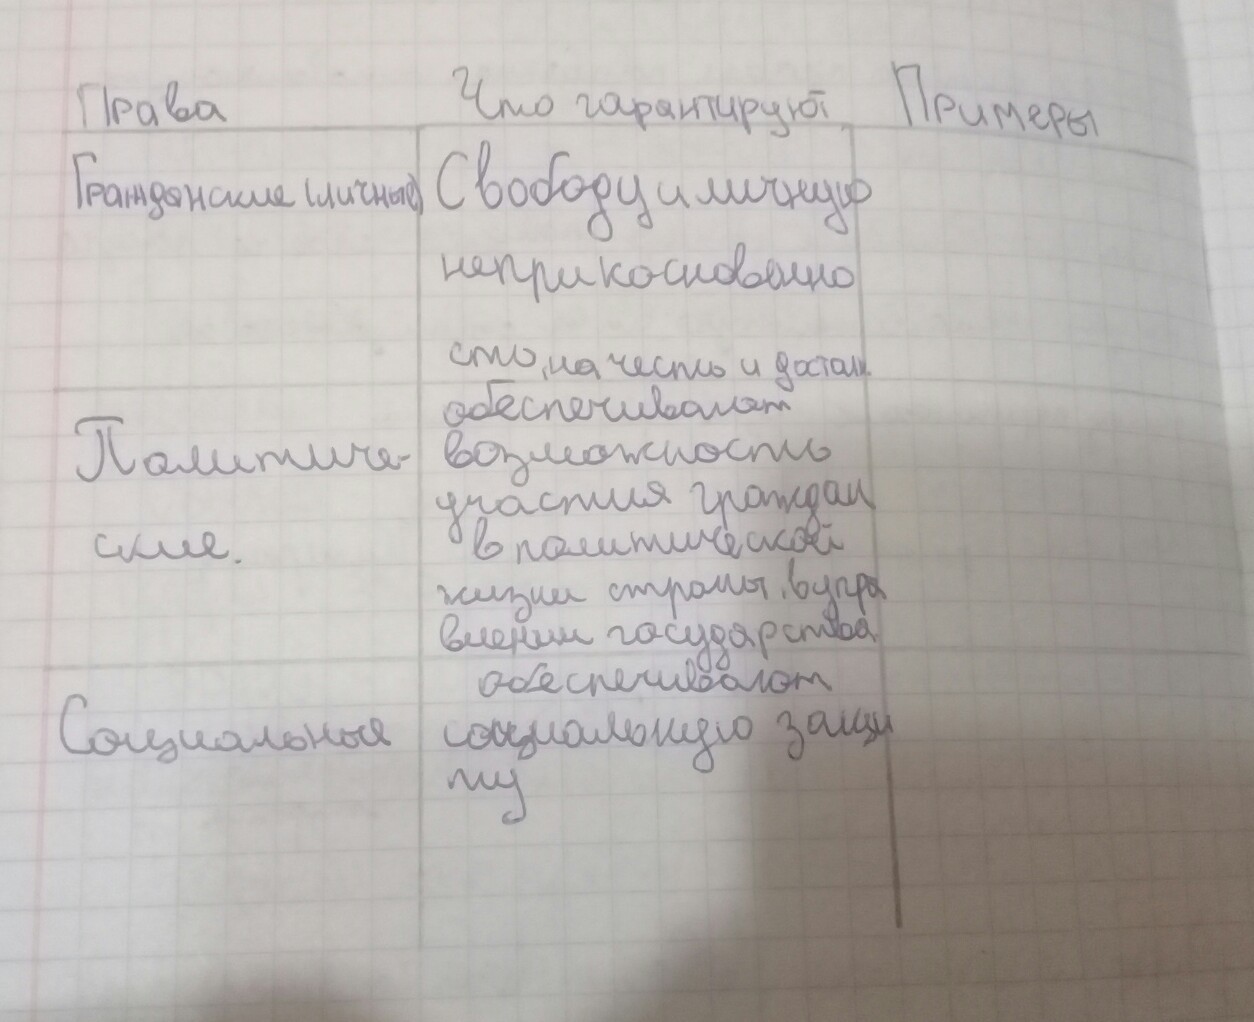 Права Что гарантируют Примеры
Гражданские (личные) Свободу и личную
неприкосновенно
сть, на честь и достоин
обеспечивают
Политиче- возможность
участия граждан
ские. в политической
жизни страны, в упра
влении государства
обеспечивают
Социальные социальную защи
ту